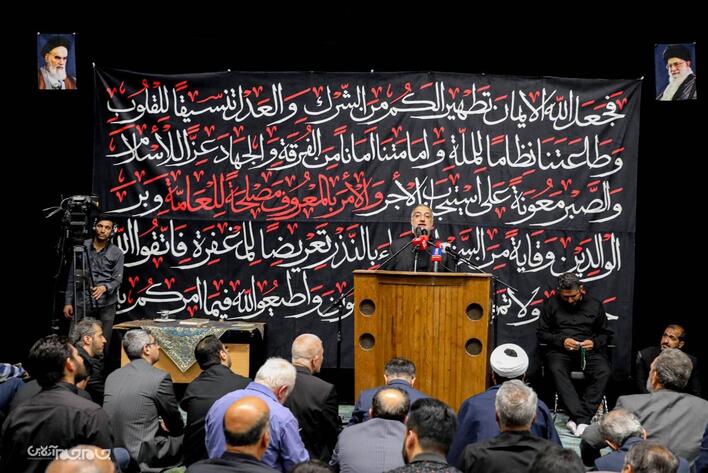 فجعل الله الایمان تطهیراً لکم من الشرک و العدل تنسیقاً للقلوب
و طاعتنا نظاماً للملة و امامتنا اماناً من الفرقة و الجهاد عزاً للاسلام
و الصبر معونة علی استیجاب الأجر و الأمر بالمعروف مصلحة للعامة و بر
الوالدین وقایة من السخط بالنذر تعریضاً للمغفرة فاتقوا الله
و لا و اطیعوا الله فیما امرکم به
آنلاین